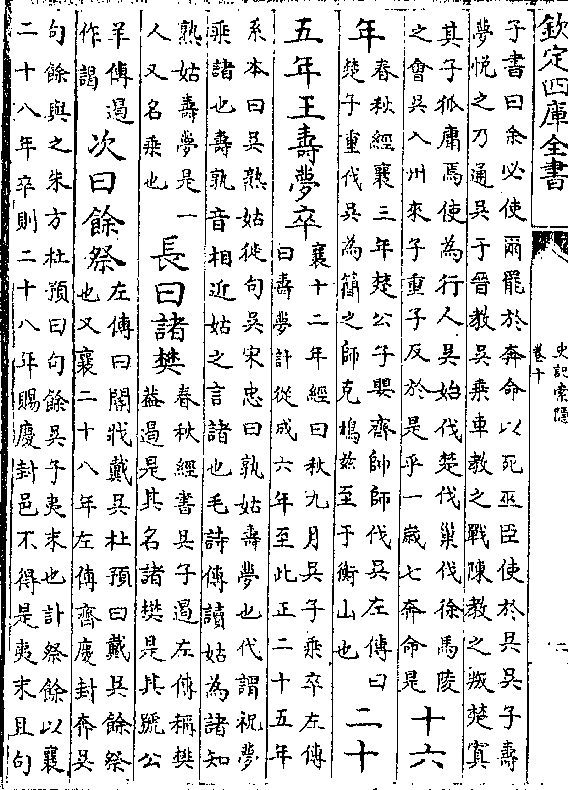 欽定四庫全書
史記索隱
卷十
子書曰余必使爾罷於奔命以死巫臣使於吳吳子壽
夢悅之乃通吳于晉教吳乘車教之戰陳教之叛楚寘
其子狐庸焉使為行人吳始伐楚伐巢伐徐馬陵
之會吳入州來子重子反於是乎一歲七奔命是
十六
年
春秋經襄三年楚公子嬰齊帥師伐吳左傳曰
楚子重伐吳為簡之師克鳩兹至于衡山也
二十
五年王壽夢卒
襄十二年經曰秋九月吳子乘卒左傳
曰壽夢計從成六年至此正二十五年
系本曰吳孰姑徙句吳宋忠曰孰姑壽夢也代謂祝夢
乘諸也壽孰音相近姑之言諸也毛詩傳讀姑為諸知
熟姑壽夢是一
人又名乘也
長曰諸樊
春秋經書吳子遏左傳稱樊
葢遏是其名諸樊是其號公
羊傳遏
作謁
次曰餘祭
左傳曰閽戕戴吳杜預曰戴吳餘祭
也又襄二十八年左傳齊慶封奔吳
句餘與之朱方杜預曰句餘吳子夷末也計祭餘以襄
二十八年卒則二十八年賜慶封邑不得是夷末且句